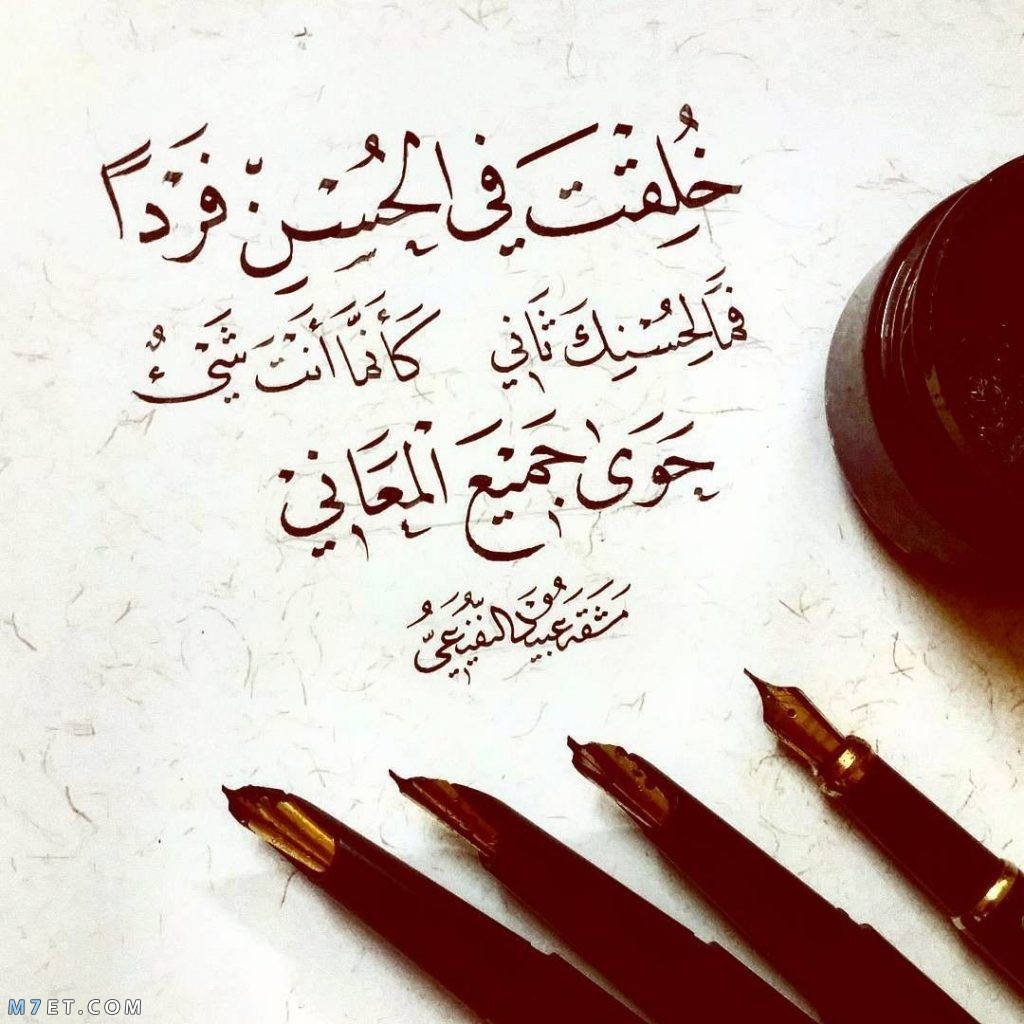 خُلِقْتَ فِي الْحُسْنِ فَرْدًا
فَمَا لِحُسْنِكَ ثَانِي كَأَنَّمَا أَنْتَ شَيْءٌ
حَوَى جَمِيعَ الْمَعَانِي
مَشَقَهُ عبيدة النفيعي
M7ET.COM